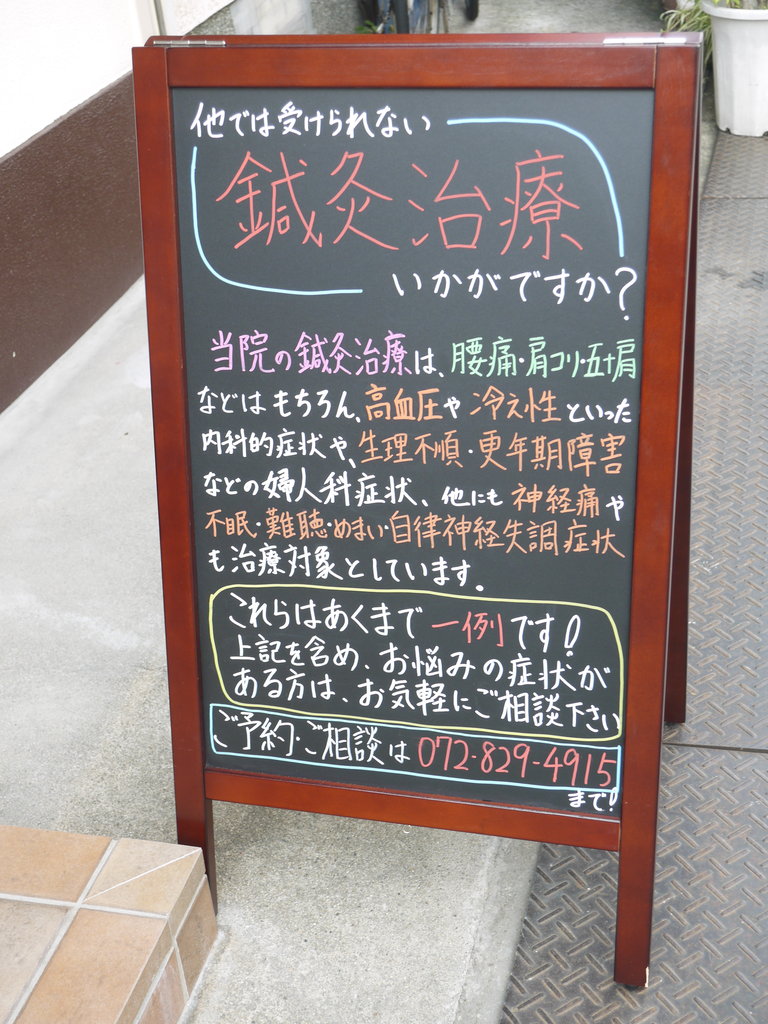 他では受けられない
鍼灸治療
いかがですか?
当院の鍼灸治療は、腰痛・肩コリ・五十肩
などは もちろん、高血圧や 冷え性 といった
内科的症状や、生理不順・更年期障害
などの婦人科症状、他にも 神経痛や
不眠・難聴・めまい・自律神経失調症状
も治療対象としています。
これらはあくまで 一例です!
上記を含め、お悩みの症状が
ある方は、お気軽にご相談下さい
ご予約・ご相談は 072-829-4915
まで!